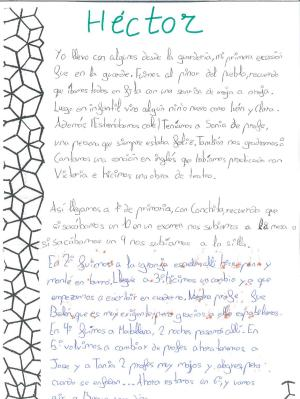 Héctor
Yo llevo con algunos desde la guardería, mi primera excursión
fue en la guarde. Fuimos al pinar del pueblo, recuerdo
que íbamos todos en fila con una sonrisa de oreja a oreja.
Luego en infantil vino algún niño nuevo como Iván y Clara.
Además (Estábamos solé) Teníamos a Sonia de profe,
una persona que siempre estaba feliz. También nos graduamos
Cantamos una canción en inglés que habíamos practicado con
Victoria e hicimos una obra de teatro.
Así llegamos a 1º de primaria, con Conchita, recuerdo que
si sacábamos un 10 en un examen nos subíamos a la mesa o
si sacábamos un 9 nos subíamos a la silla.
En 2º fuimos a la granja escuela
mente en barro. Llegué a 3º hicimos un cambio y es que
empezamos a escribir en cuaderno. Nuestra profe fue
Belén que es muy exigente pero gracias a ella
En 4º fuimos a 2 noches pasamos allí. En
5º volvimos a cambiar de profes ahora tenemos a
Jose y a Tania 2 profes muy majos y alegres, pero
cuando se enfadan... Ahora estamos en 6º, y vamos